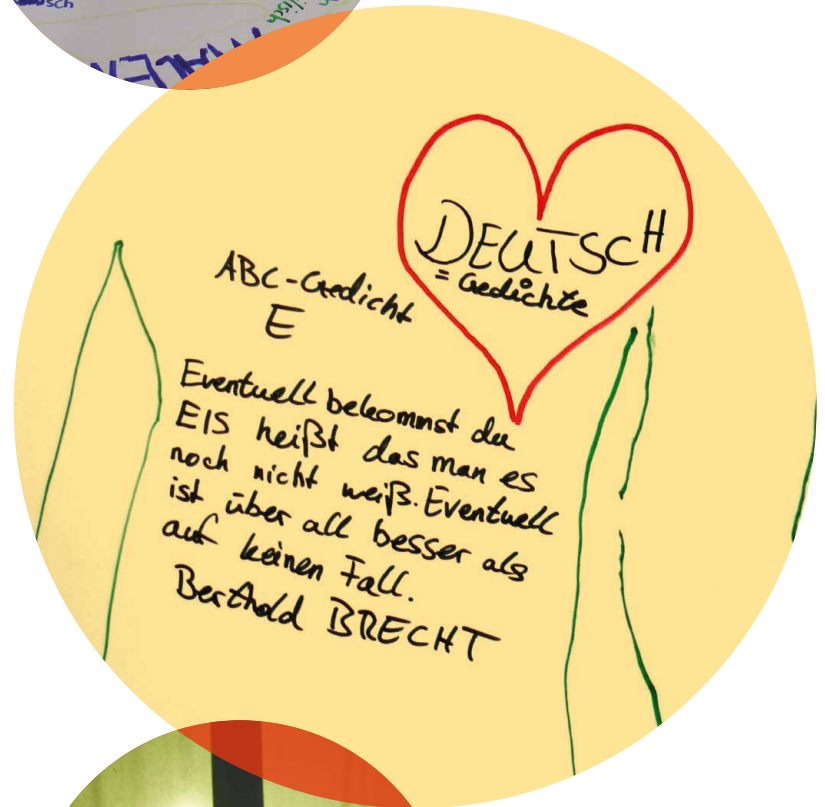 DEUTSCH
= Gedichte
ABC-Gedicht
E
Eventuell bekommst du
EIS heißt das man es
noch nicht weiß. Eventuell
ist über all besser als
auf keinen Fall.
Berthold BRECHT